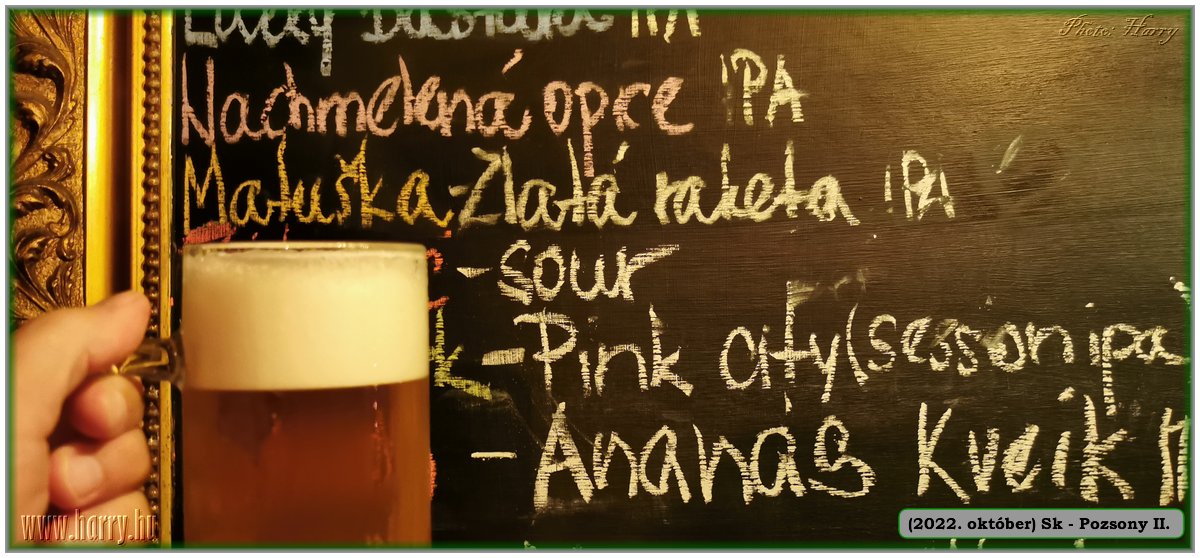 Photo: Harry
Lucky Bastard IPA
Nachmelená opice IPA
Matuška - Zlatá raketa IPA
- sour
k - Pink city (sesson ipa)
- Ananas Kveik
www.harry.hu
(2022. október) Sk - Pozsony II.